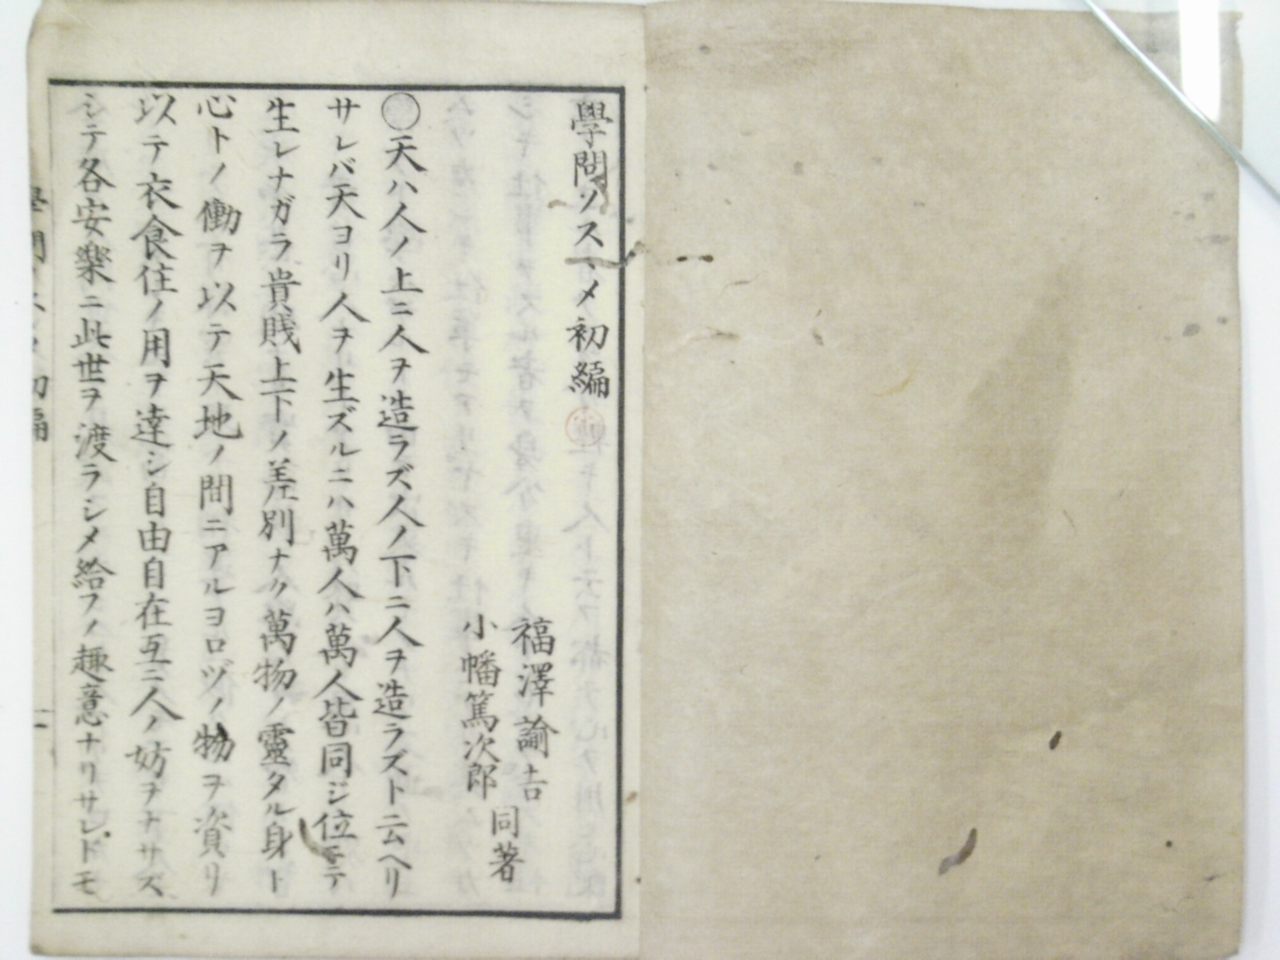 學問ノスヽメ 初編
福澤諭吉
小幡篤次郎
同著
◯天ハ人ノ上ニ人ヲ造ラズ人ノ下ニ人ヲ造ラズト云ヘリ
サレバ天ヨリ人ヲ生ズルニハ萬人ハ萬人皆同ジ位ニテ
生レナガラ貴賤上下ノ差別ナク萬物ノ靈タル身ト
心トノ働ヲ以テ天地ノ間ニアルヨロヅノ物ヲ資リ
以テ衣食住ノ用ヲ達シ自由自在互ニ人ノ妨ヲナサズ
シテ各安樂ニ此世ヲ渡ラシメ給フノ趣意ナリサレドモ
初編
一